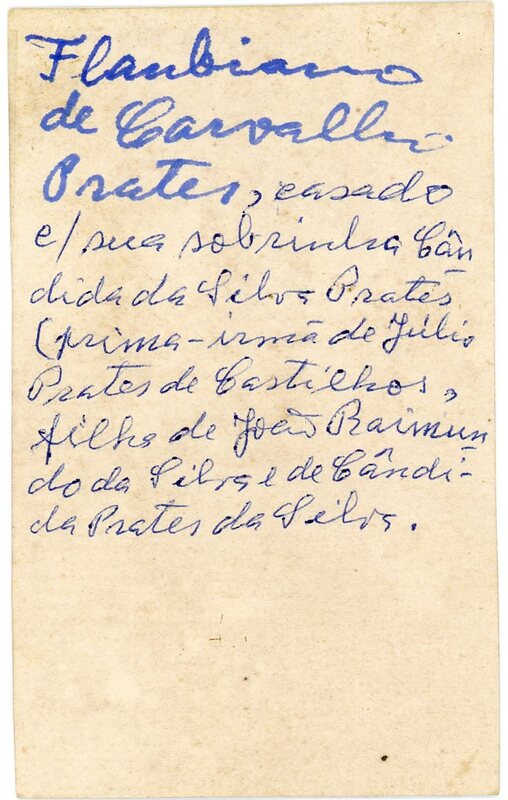 Flaubiano
de Carvalho
Prates, casado
c/ sua sobrinha Cân
dida da Silva Prates
(prima-irmã de Júlio
Prates de Castilhos,
filha de João Raimun
do da Silva e de Cândi-
da Prates da Silva.